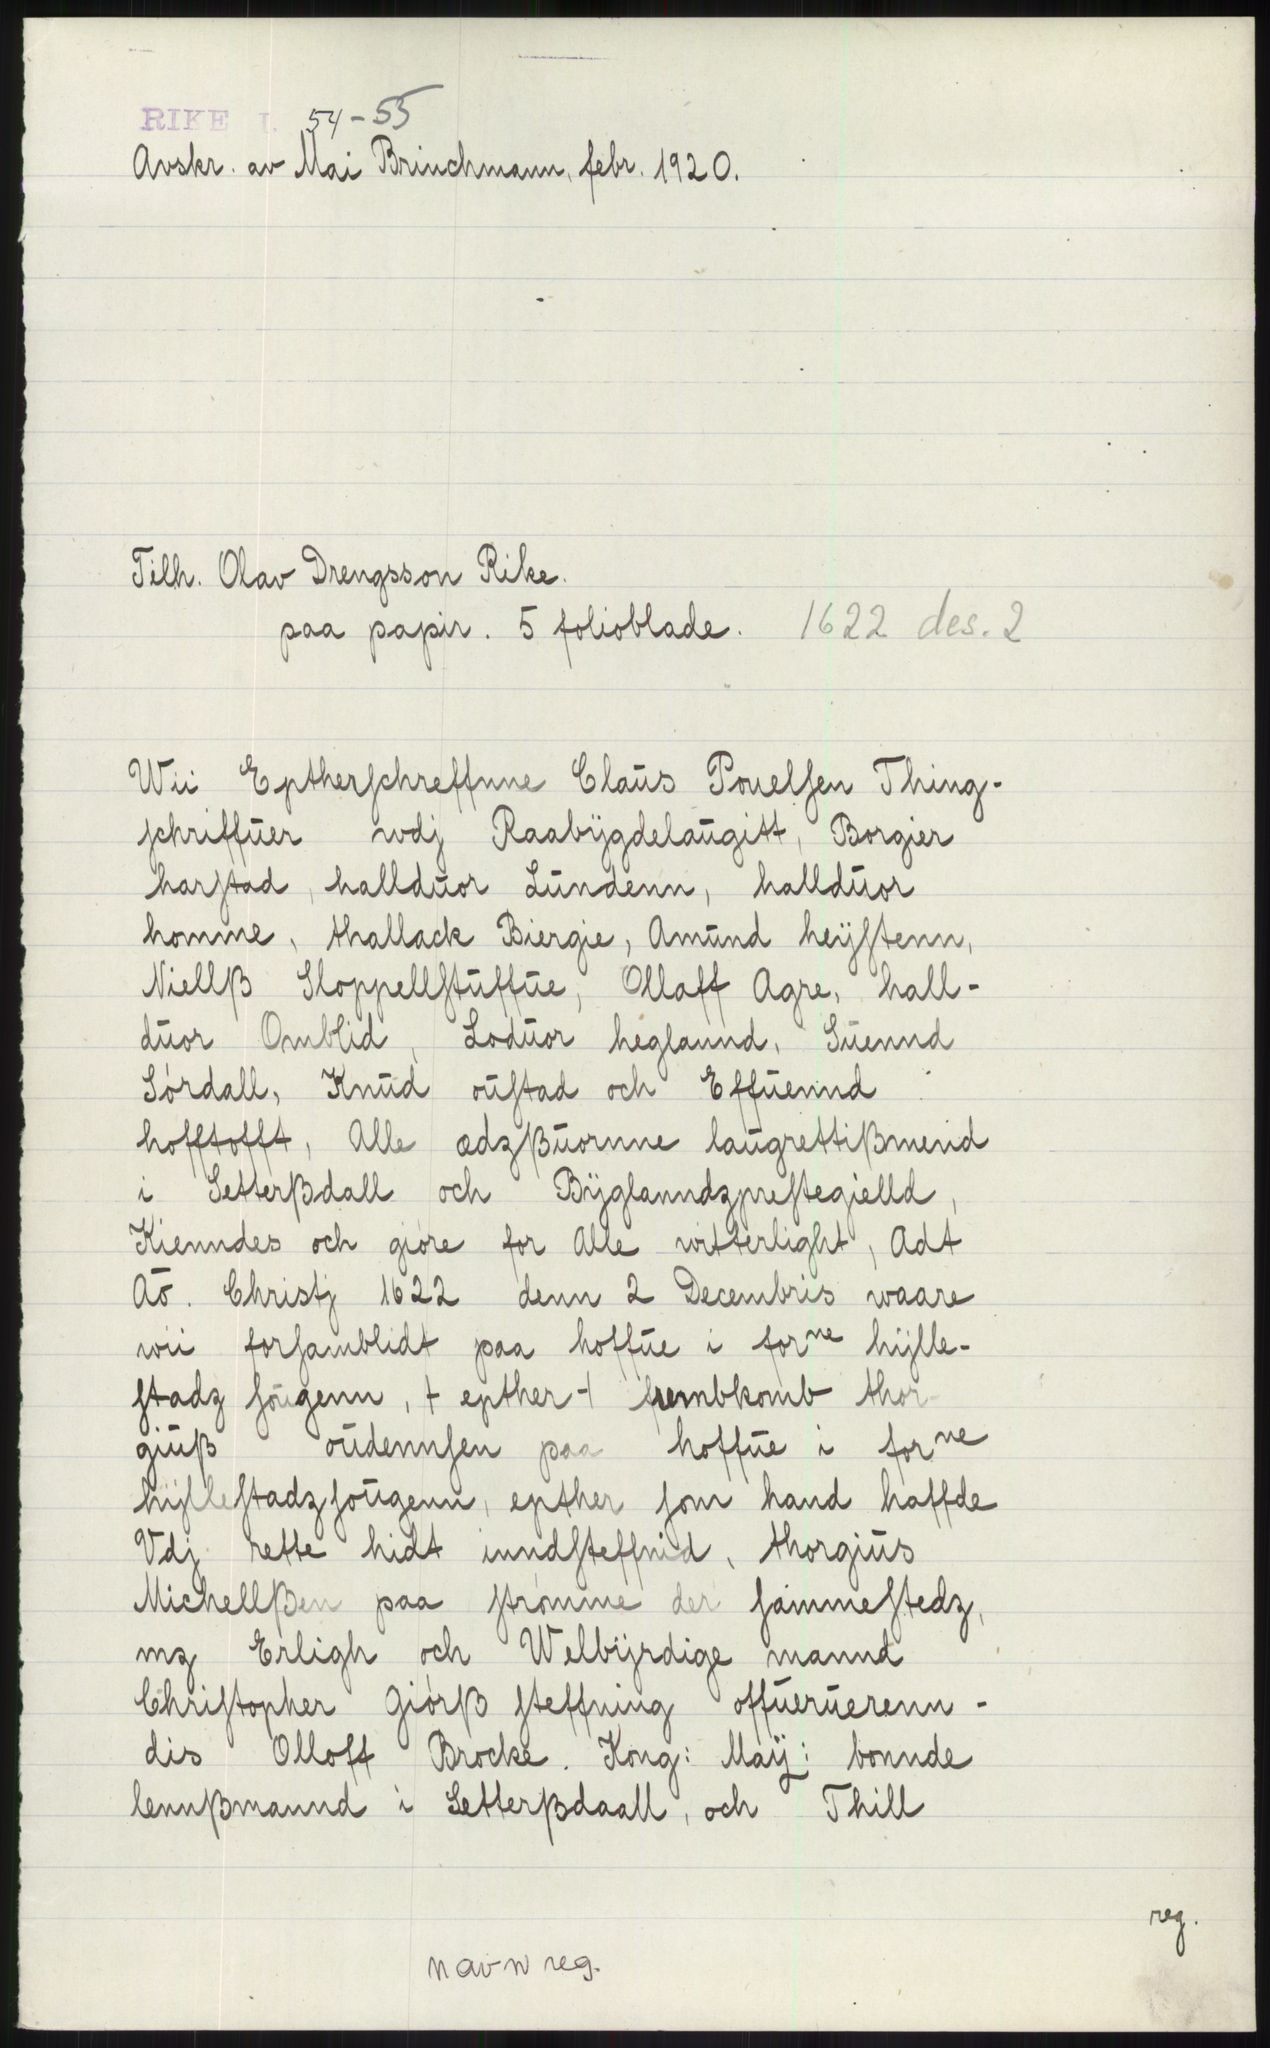 RIKE I. 54-55
Avskr. av Mai Brinchmann, febr. 1920.
Tilh. Olav Drengsson Rike.
paa papir. 5 folioblade. 1622 des. 2
Wii Eptherſchreffnne Claŭs Pouelſen Thing-
ſchriffŭer wdj Raabÿgdelaŭgitt, Borgier
harſtad, halldŭor Lŭndenn, halldŭor
homme, thallack Biergie, Amŭnd heÿſtenn,
Niellß Sloppellſtŭffŭe, Ollaff Agre, hall-
dŭor Omblid, Lodŭor heglannd, Sŭennd
Sørdall, Knŭd oŭſtad och Effŭennd
hofftofft, Alle ædzßŭornne laŭgrettißmend
i Setterßdall och Bÿglanndzpreſtegielld,
Kienndes och giøre for Alle witterlight, Adt
Aō. Christj 1622 denn 2 Decembris waare
wii forſamblidt paa hoffŭe i forne hÿlle-
ſtadz ſoŭgenn, + epther + frembkomb thor-
giŭß oŭdennſen paa hoffŭe i forne
hÿlleſtadzſoŭgenn, epther ſom hand haffde
Vdj rette hidt inndſteffnid, thorgiŭs
Michellßen paa ſtrømme der ſammeſtedz,
mz Erligh och Welbÿrdige mannd
Chriſtopher Giørß ſteffning offŭerŭerenn-
dis Olloff Brocke. Kong: Maÿ: bonnde
lennßmannd i Setterßdaall, och Thill
reg.
navn reg.